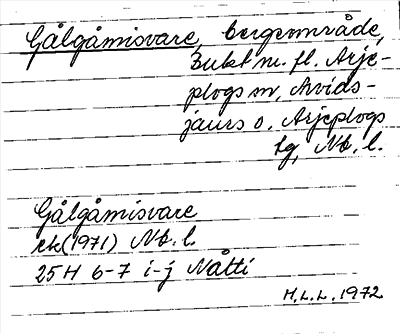 Gålgåmisvare, bergområde,
Bukt m. fl. Arje-
plogs sn, Arvids-
jaurs o. Arjeplogs
tg, Nb. l.
Gålgåmisvare
ek (1971) Nb. l.
25H 6-7 i-j Nåtti
H.L.L. 1972